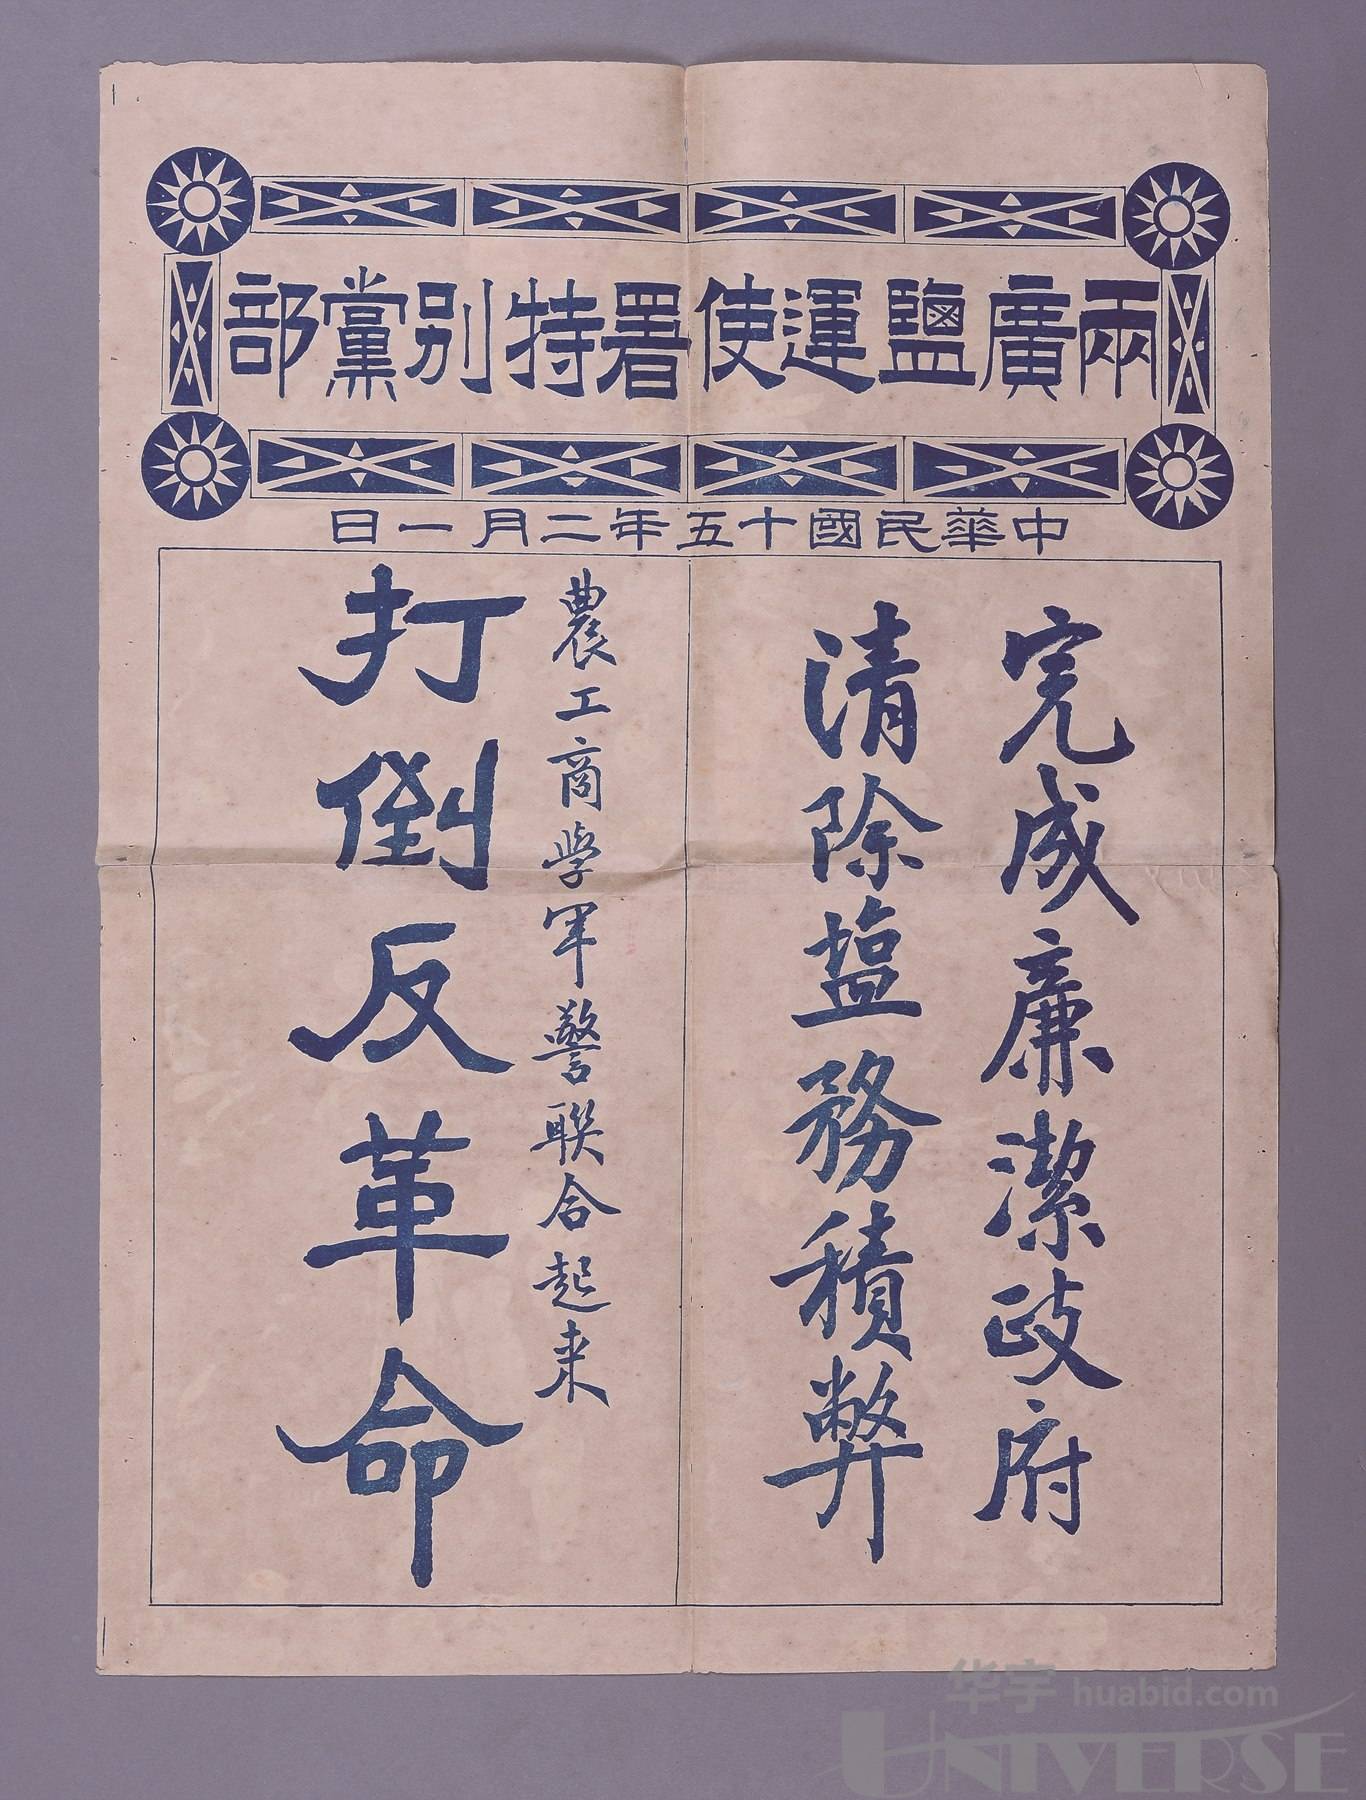 兩廣鹽運使署特別黨部
中華民國十五年二月一日
完成廉潔政府
清除塩務積弊
農工商學軍警聯合起來
打倒反革命
华宇 huabid.com
UNIVERSE